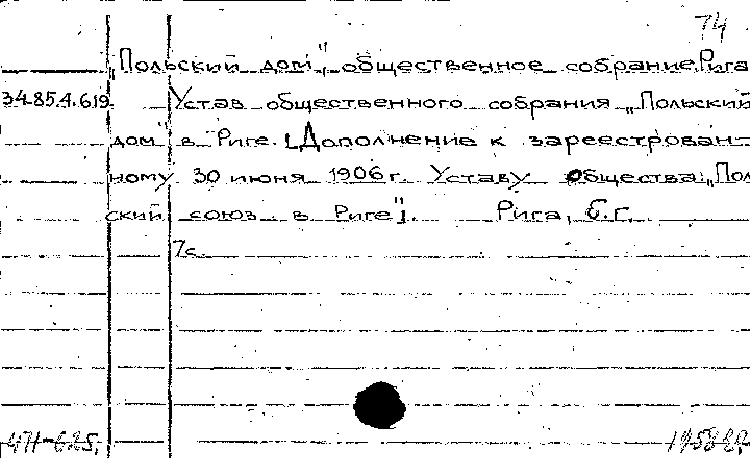 74
„Польский дом", общественное собрание. Рига
34.85.4.619. Устав общественного собрания „Польский
дом" в Риге. [Дополнение к зарегистрован-
ному 30 июня 1906 г. Уставу общества: „Поль
ский союз в Риге"]. Рига, б.г.
7с.
471-625.